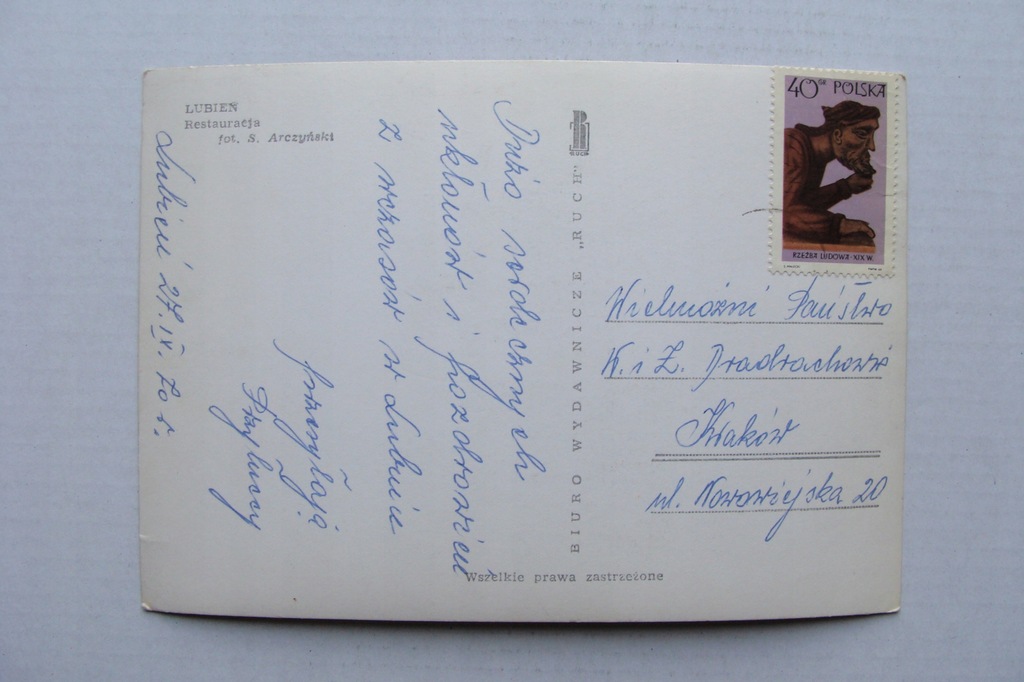 LUBIEŃ
Restauracja
fot. S. Arczyński
Lubień 27.IX.70 r.
Dużo serdecznych
ukłonów i pozdrowień
z wczasów w Lubniu
przesyłają
Przyłuccy
BIURO WYDAWNICZE „RUCH"
RUCH
Wszelkie prawa zastrzeżone
40 GR POLSKA
RZEŹBA LUDOWA · XIX W.
Wielmożni Państwo
K. i Z.
Kraków
ul. Nowowiejska 20